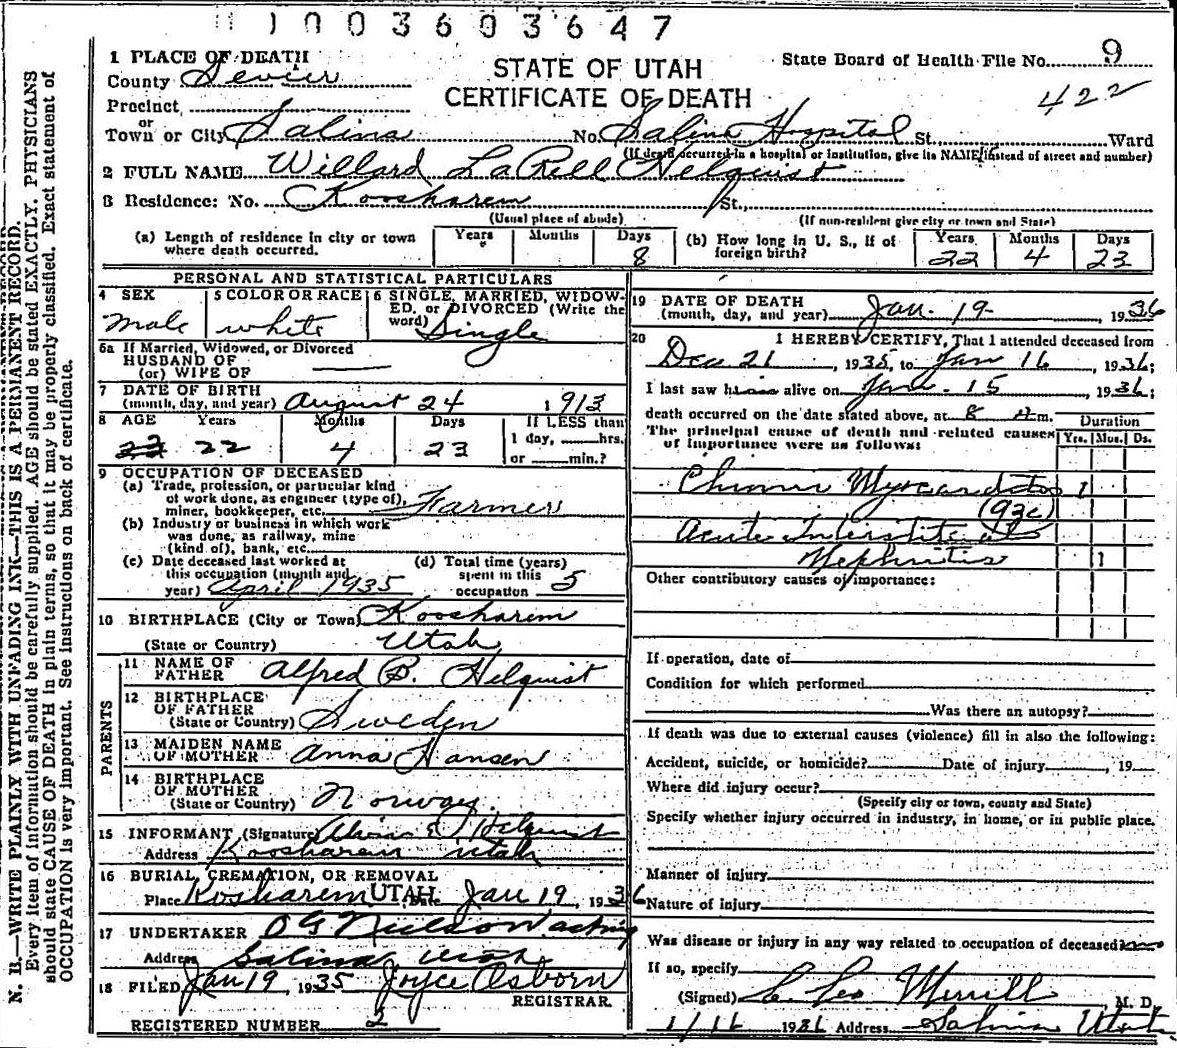 1003603647
1 PLACE OF DEATH
County Sevier
STATE OF UTAH
CERTIFICATE OF DEATH
State Board of Health File No. 9
422
Precinct
or
Town or City Salina No. Salina Hospital St. Ward
(If death occurred in a hospital or institution, give its NAME instead of street and number)
2 FULL NAME Willard LaRell Helquist
3 Residence: No. Koosharem St.,
(Usual place of abode) (If non-resident give city or town and State)
(a) Length of residence in city or town where death occurred. Years Months Days 8
(b) How long in U. S., if of foreign birth? Years 22 Months 4 Days 23
PERSONAL AND STATISTICAL PARTICULARS
4 SEX male
5 COLOR OR RACE white
6 SINGLE, MARRIED, WIDOWED, or DIVORCED (Write the word) Single
6a If Married, Widowed, or Divorced
HUSBAND OF
(or) WIFE OF
7 DATE OF BIRTH
(month, day, and year) August 24 1913
8 AGE Years 22 Months 4 Days 23
If LESS than 1 day, hrs. or min.?
9 OCCUPATION OF DECEASED
(a) Trade, profession, or particular kind
of work done, as engineer (type of),
miner, bookkeeper, etc. Farmer
(b) Industry or business in which work
was done, as railway, mine
(kind of), bank, etc.
(c) Date deceased last worked at
this occupation (month and
year) April 1935
(d) Total time (years)
spent in this
occupation 5
10 BIRTHPLACE (City or Town) Koosharem
(State or Country) Utah
PARENTS
11 NAME OF FATHER Alfred B. Helquist
12 BIRTHPLACE OF FATHER
(State or Country) Sweden
13 MAIDEN NAME OF MOTHER Anna Hansen
14 BIRTHPLACE OF MOTHER
(State or Country) Norway.
15 INFORMANT (Signature) Helquist
Address Koosharem Utah
16 BURIAL, CREMATION, OR REMOVAL
Place Kosharem UTAH Date Jan 19, 1936
17 UNDERTAKER
Address Salina Utah
18 FILED Jan 19, 1935 Joyce Osborn
REGISTRAR.
REGISTERED NUMBER 2
19 DATE OF DEATH
(month, day, and year) Jan. 19, 1936
20 I HEREBY CERTIFY, That I attended deceased from
Dec 21, 1935, to Jan 16, 1936;
I last saw him alive on Jan. 15, 1936;
death occurred on the date stated above, at 8 A m.
The principal cause of death and related causes
of importance were as follows:
Duration
Yrs. Mos. Ds.
Chronic Myocarditis 1
(93c)
Acute Interstitial
Nephritis 1
Other contributory causes of importance:
If operation, date of
Condition for which performed
Was there an autopsy?
If death was due to external causes (violence) fill in also the following:
Accident, suicide, or homicide? Date of injury, 19
Where did injury occur?
(Specify city or town, county and State)
Specify whether injury occurred in industry, in home, or in public place.
Manner of injury
Nature of injury
Was disease or injury in any way related to occupation of deceased
If so, specify
(Signed) Leo Merrill, M. D.
1/16 1936 Address Salina Utah
N. B.—WRITE PLAINLY WITH UNFADING INK—THIS IS A PERMANENT RECORD.
Every item of information should be carefully supplied. AGE should be stated EXACTLY. PHYSICIANS
should state CAUSE OF DEATH in plain terms, so that it may be properly classified. Exact statement of
OCCUPATION is very important. See instructions on back of certificate.